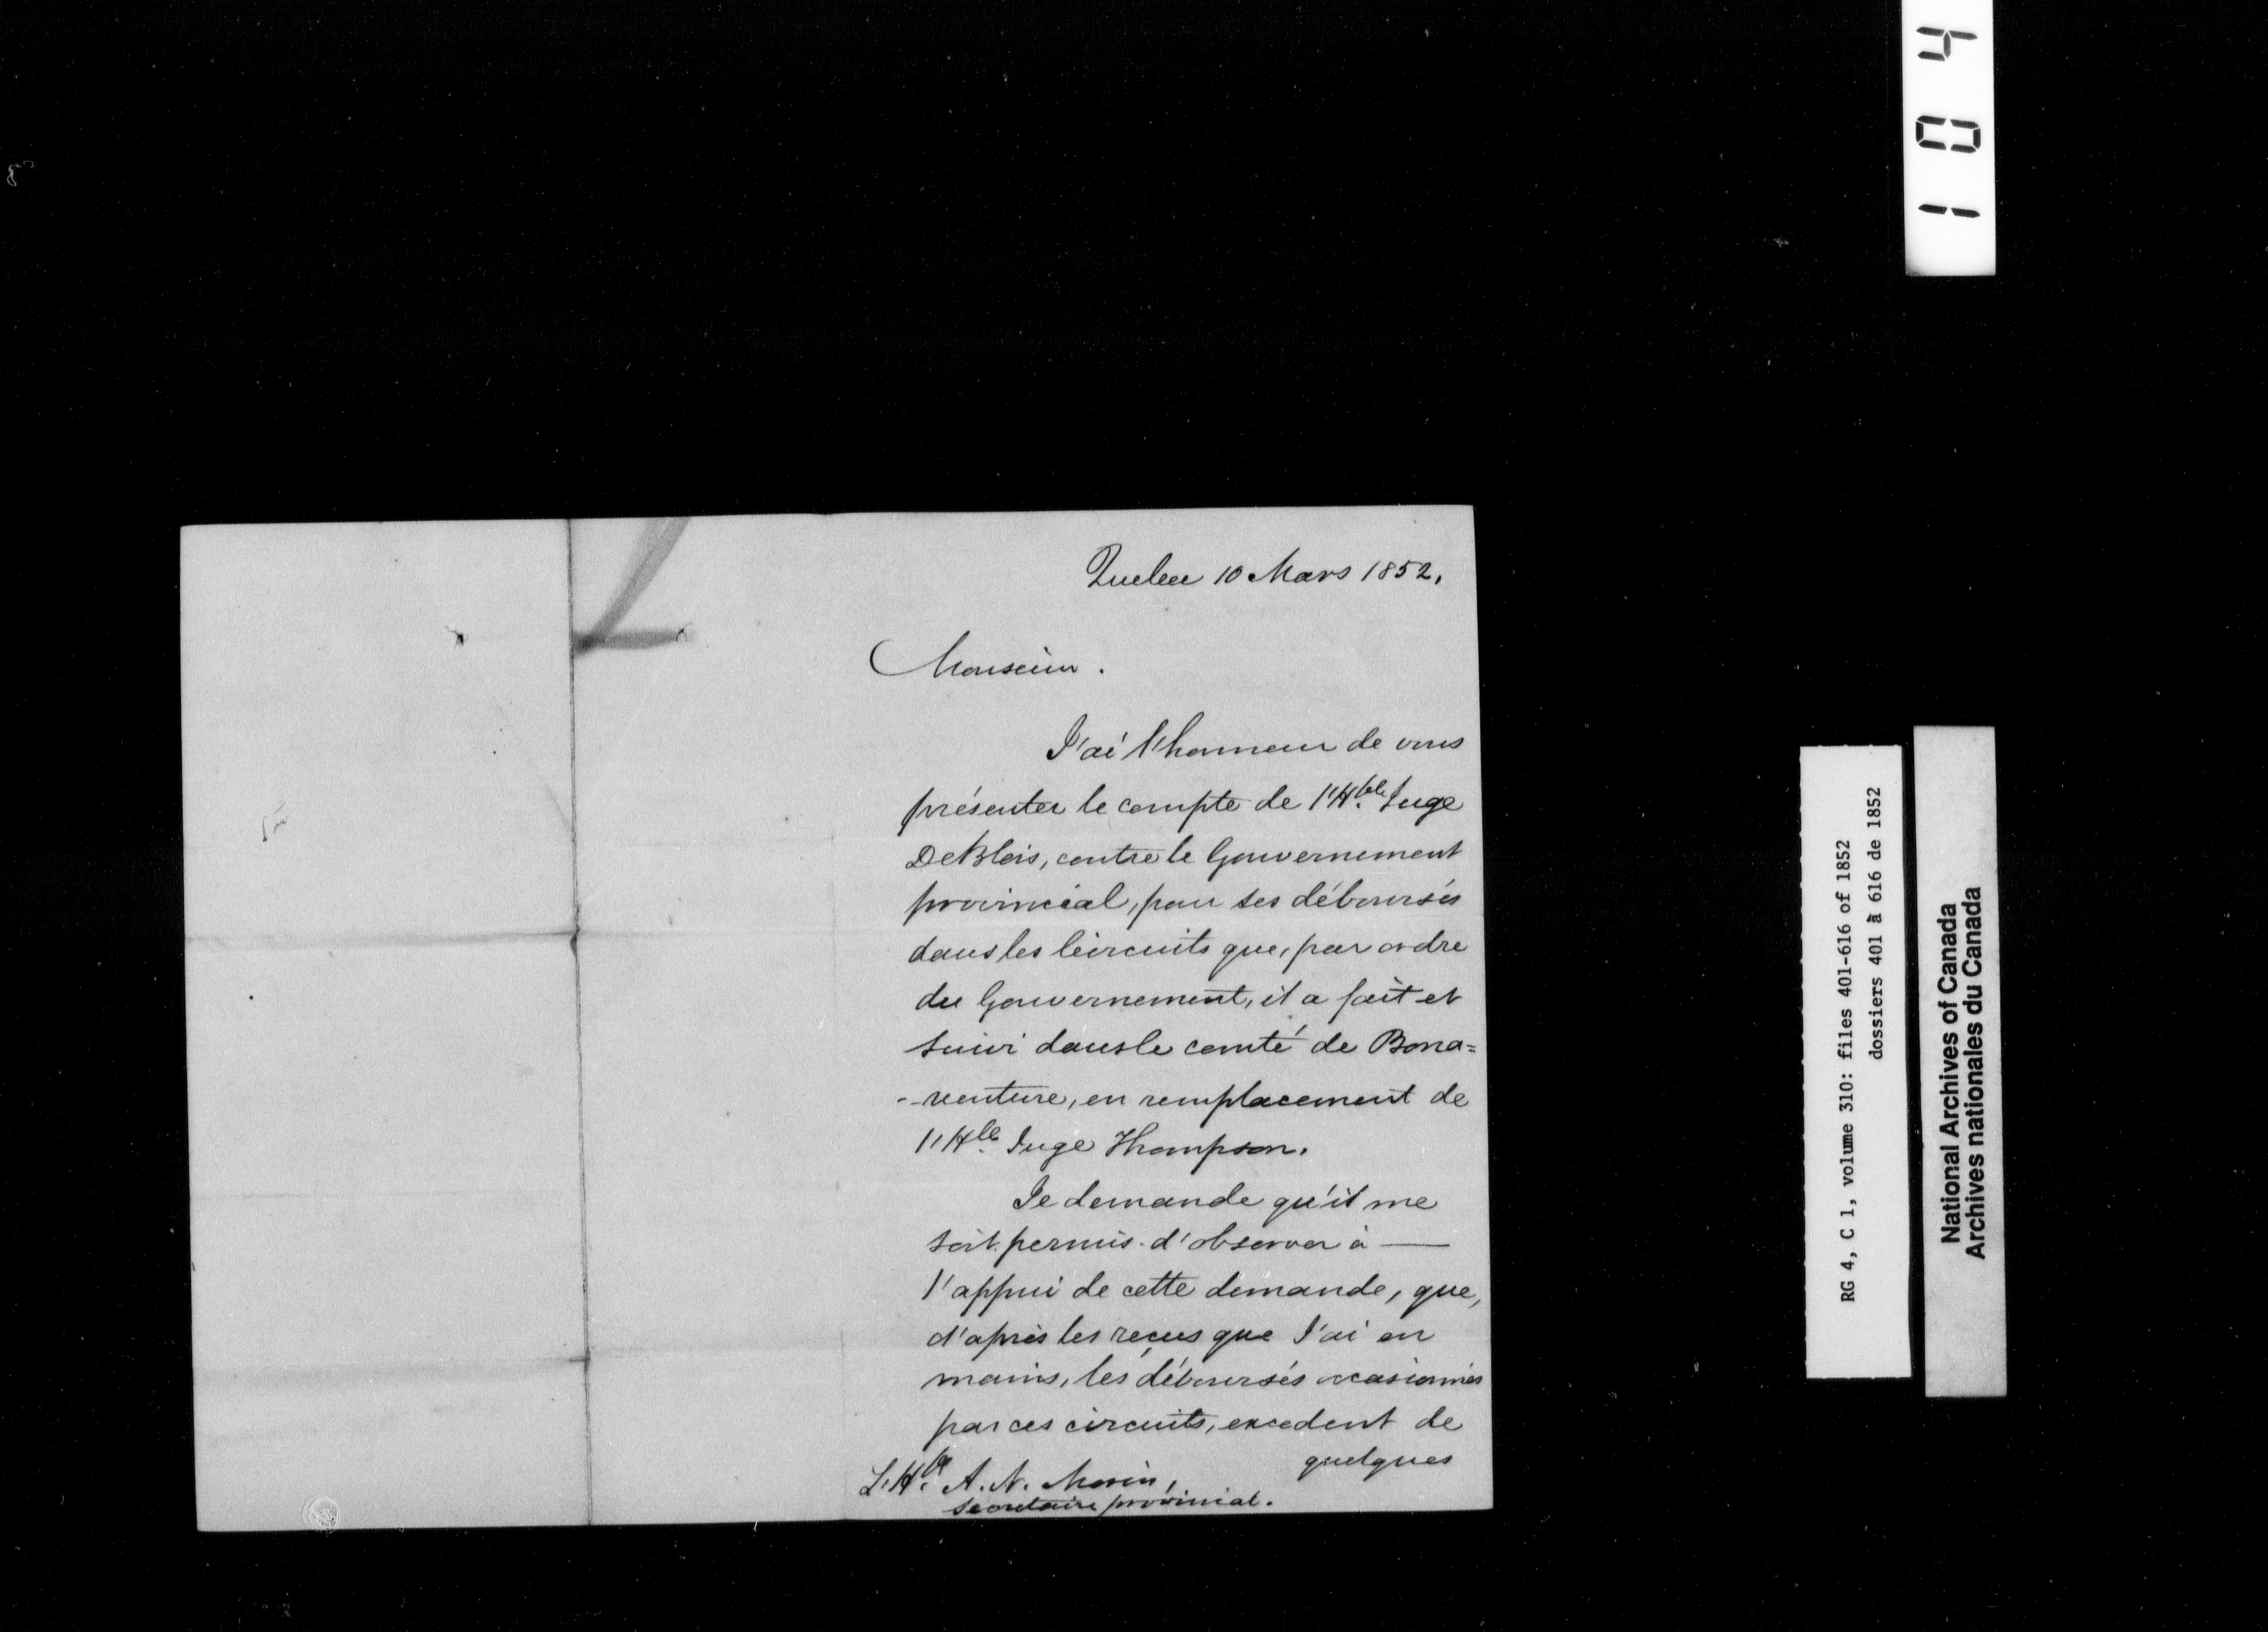 Quebec 10 Mars 1852.
Monsieur.
J'ai l'honneur de vous
présenter le compte de l'H.ble Juge
DeBlois, contre le Gouvernement
provincial, pour ses déboursés
dans les Circuits que, par ordre
du Gouvernement, il a fait et
suivi dans le comté de Bona=
-venture, en remplacement de
l'H.le Juge Thompson.
Je demande qu'il me
soit permis d'observer à —
l'appui de cette demande, que,
d'après les reçus que J'ai en
mains, les déboursés occasionnés
par ces circuits, excedent de
quelques
L'H.ble A. N. Morin,
Secretaire provincial.
104
RG 4, C 1, volume 310: files 401-616 of 1852
dossiers 401 à 616 de 1852
National Archives of Canada
Archives nationales du Canada